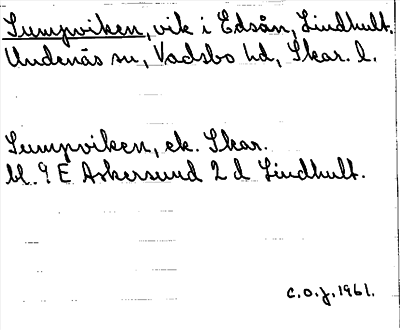 Sumpviken, vik i Edsån, Lindhult.
Undenäs sn, Vadsbo hd, Skar. l.
Sumpviken, ek. Skar.
bl. 9 E Askersund 2 d Lindhult.
C.O.J. 1961.